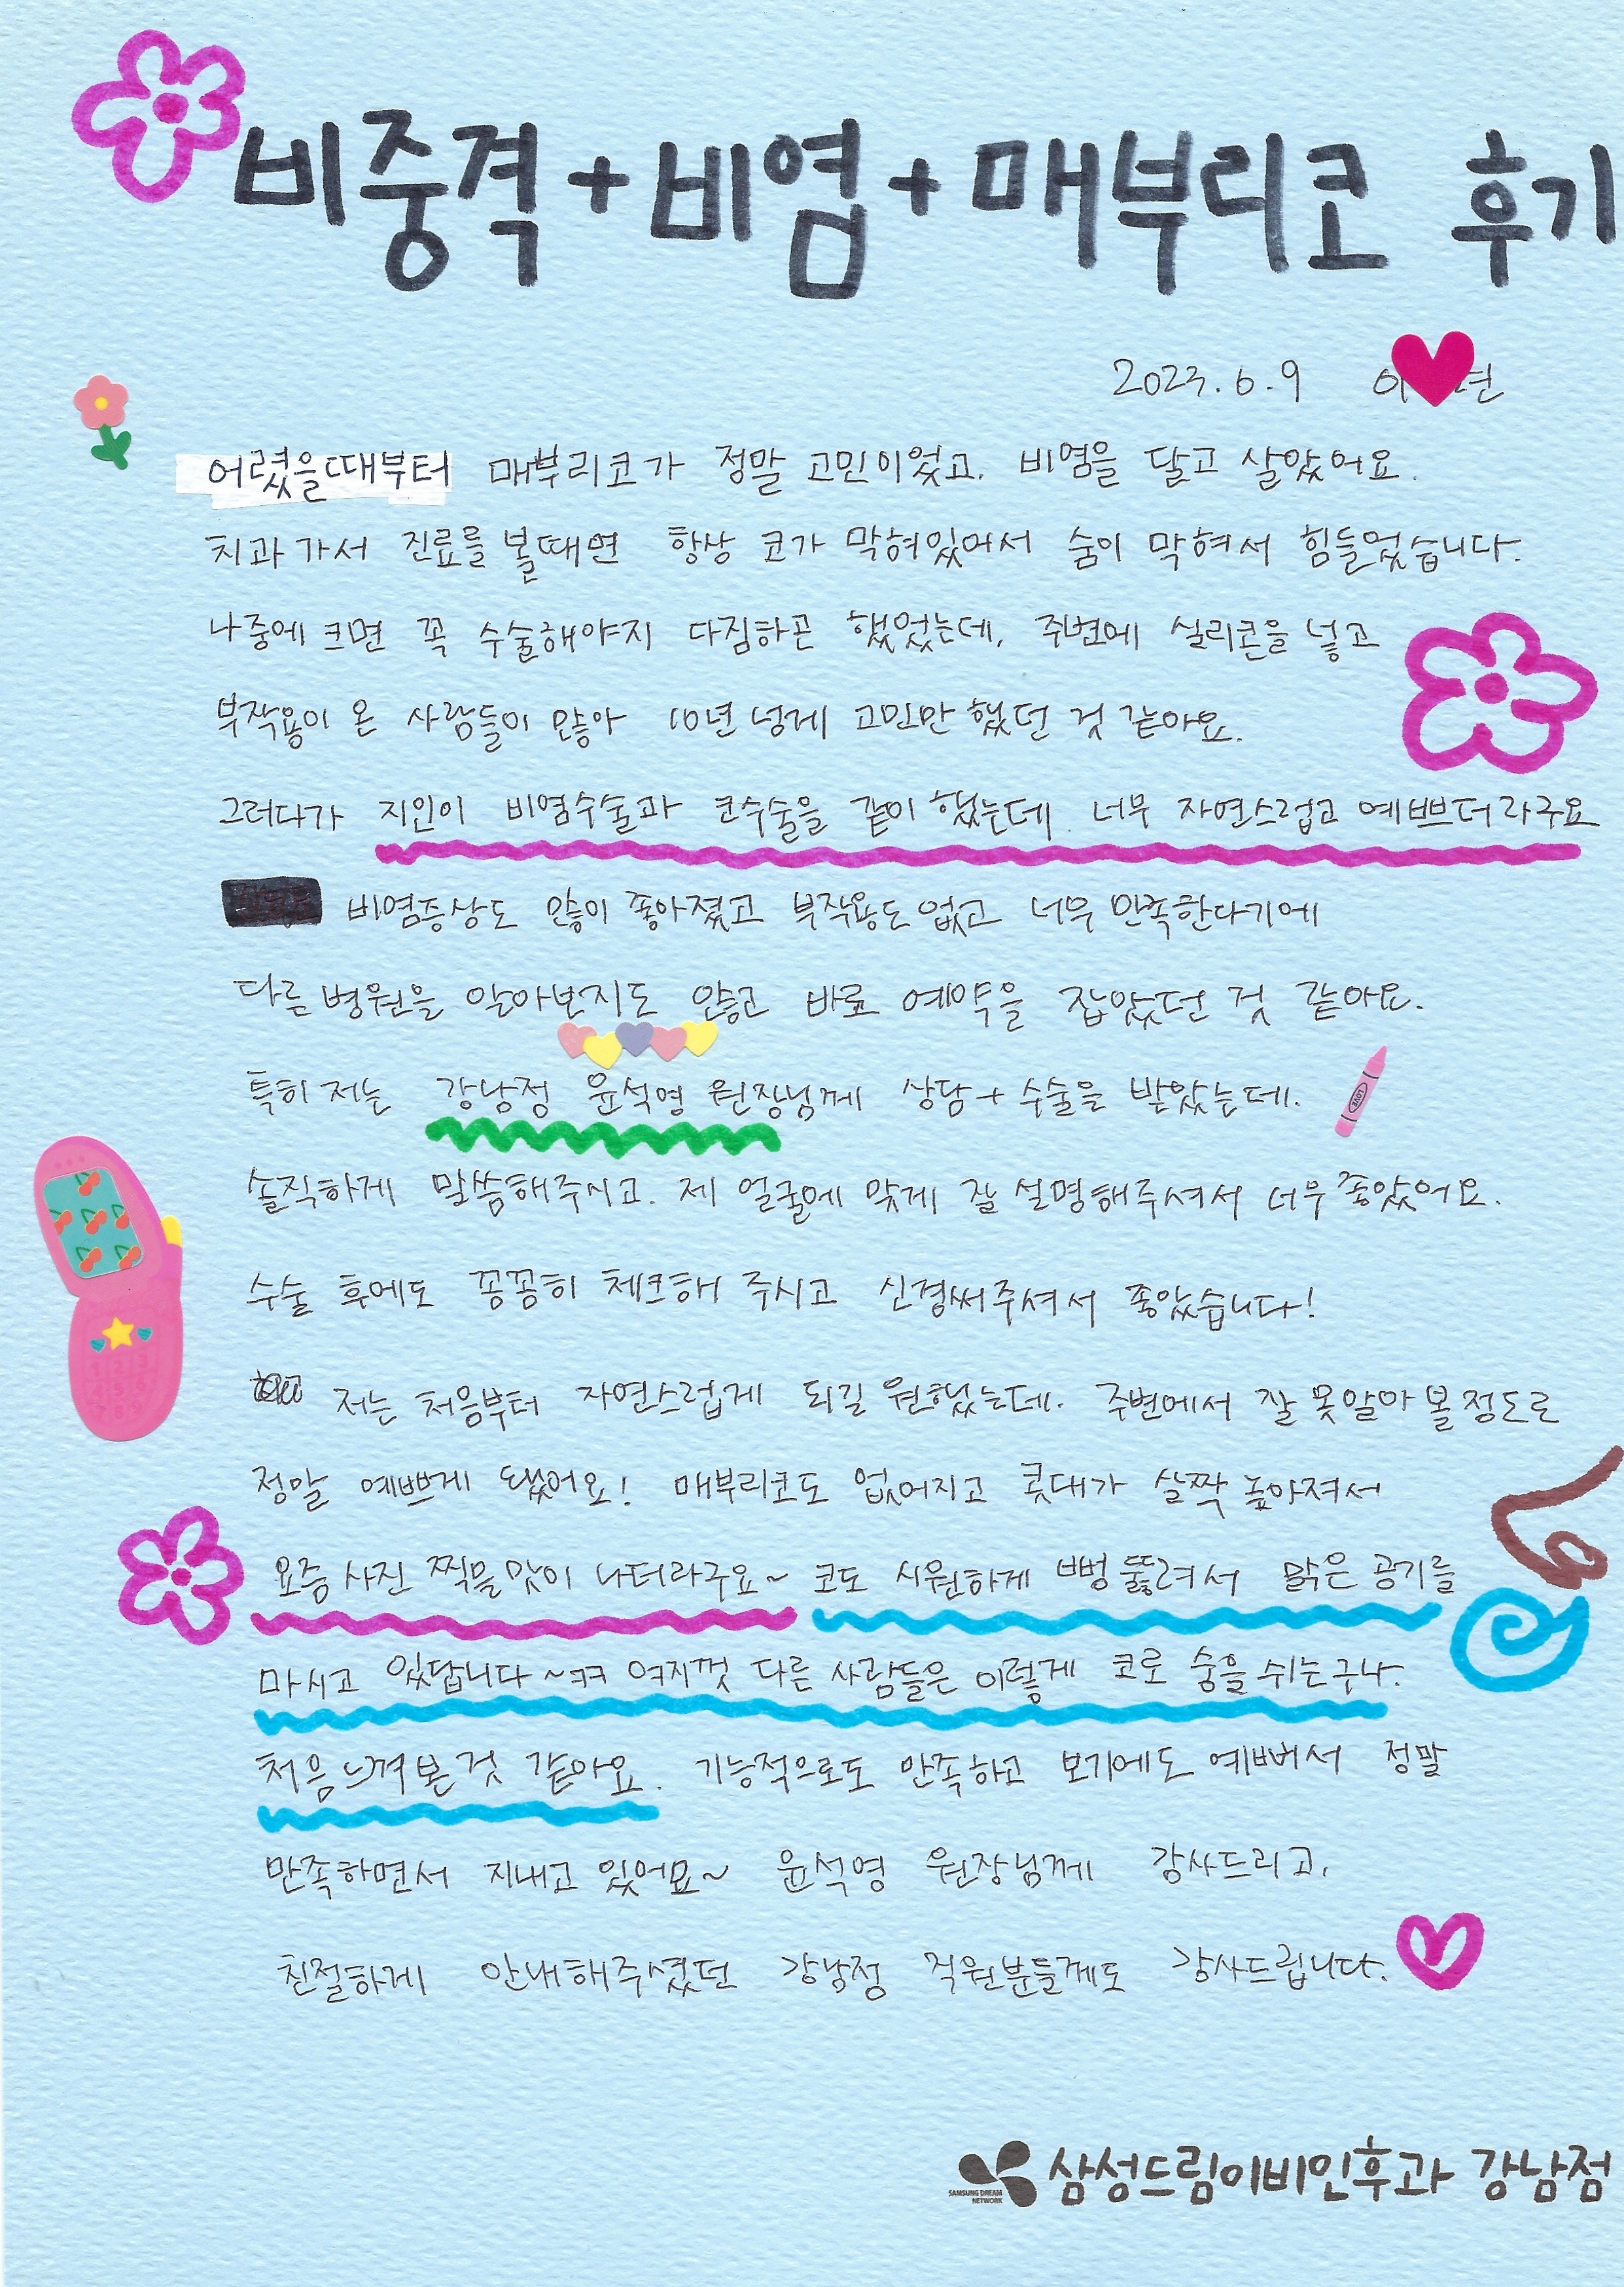 비중격+비염+매부리코 후기
2023.6.9 이 년
어렸을때부터 매부리코가 정말 고민이었고, 비염을 달고 살았어요.
치과가서 진료를 볼때면 항상 코가 막혀있어서 숨이 막혀서 힘들었습니다.
나중에 크면 꼭 수술해야지 다짐하곤 했었는데, 주변에 실리콘을 넣고
부작용이 온 사람들이 많아 10년 넘게 고민만 했던 것 같아요.
그러다가 지인이 비염수술과 코수술을 같이 했는데 너무 자연스럽고 예쁘더라구요
비염증상도 많이 좋아졌고 부작용도 없고 너무 만족한다기에
다른병원을 알아보지도 않고 바로 예약을 잡았던 것 같아요.
특히 저는 강남점 윤석영 원장님께 상담+수술을 받았는데.
솔직하게 말씀해주시고. 제 얼굴에 맞게 잘 설명해주셔서 너무 좋았어요.
수술 후에도 꼼꼼히 체크해 주시고 신경써주셔서 좋았습니다!
저는 처음부터 자연스럽게 되길 원했는데. 주변에서 잘 못알아 볼정도로
정말 예쁘게 됐어요! 매부리코도 없어지고 콧대가 살짝 높아져서
요즘 사진 찍을맛이 나더라구요~ 코도 시원하게 뻥 뚫려서 맑은 공기를
마시고 있답니다~ㅋㅋ 여지껏 다른 사람들은 이렇게 코로 숨을 쉬는구나.
처음느껴본것 같아요. 기능적으로도 만족하고 보기에도 예뻐서 정말
만족하면서 지내고 있어요~ 윤석영 원장님께 감사드리고,
친절하게 안내해주셨던 강남점 직원분들께도 감사드립니다.
SAMSUNG DREAM NETWORK 삼성드림이비인후과 강남점